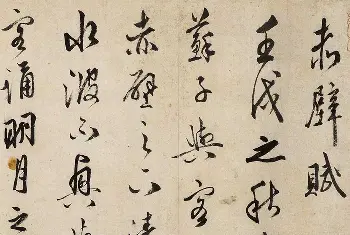 赤壁賦
壬戌之秋
蘇子與客
赤壁之下清
水波不興
客誦明月之